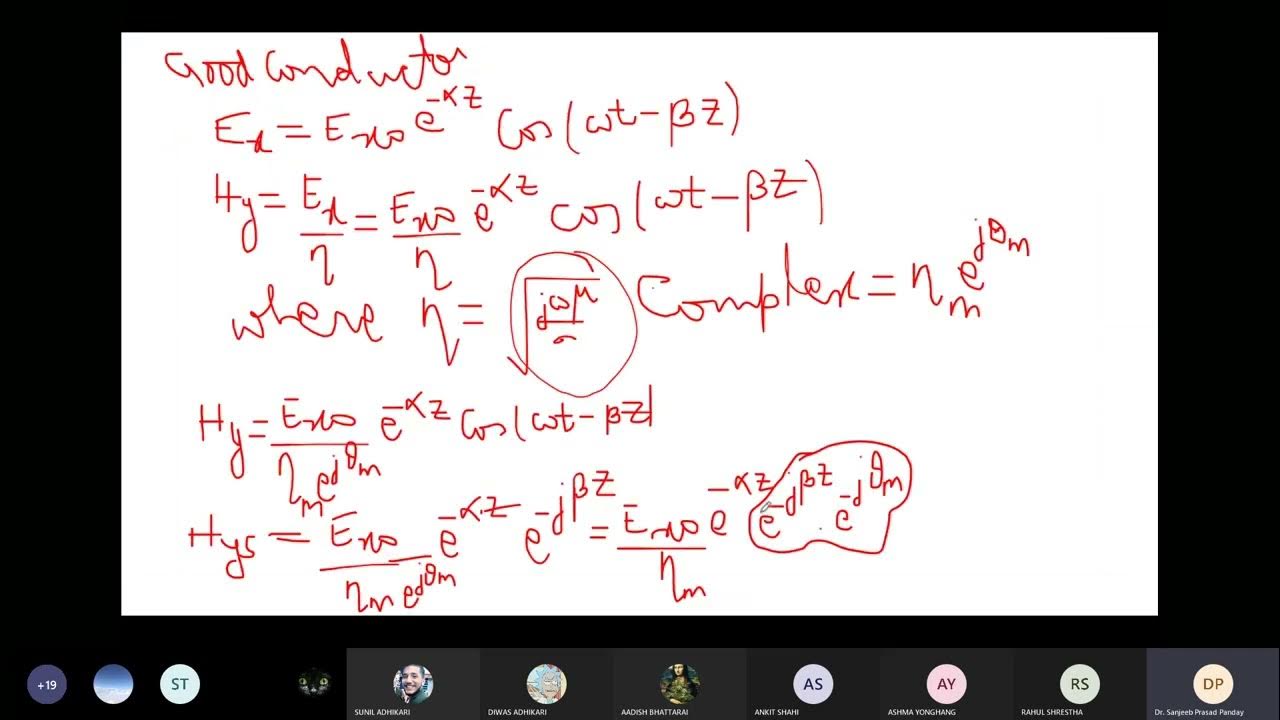 Good Conductor
Ex = Exo e^-αz Cos(ωt - βz)
Hy = Ex/η = Exo/η e^-αz cos(ωt - βz)
where η = √(jωμ/σ) Complex = ηm e^jθm
Hy = Exo/(ηm e^jθm) e^-αz Cos(ωt - βz)
Hys = Exo/(ηm e^jθm) e^-αz e^-jβz = Exo/ηm e^-αz e^-jβz . e^-jθm
+19 ST AS AY RS DP
SUNIL ADHIKARI DIWAS ADHIKARI AADISH BHATTARAI ANKIT SHAHI ASHMA YONGHANG RAHUL SHRESTHA Dr. Sanjeeb Prasad Panday